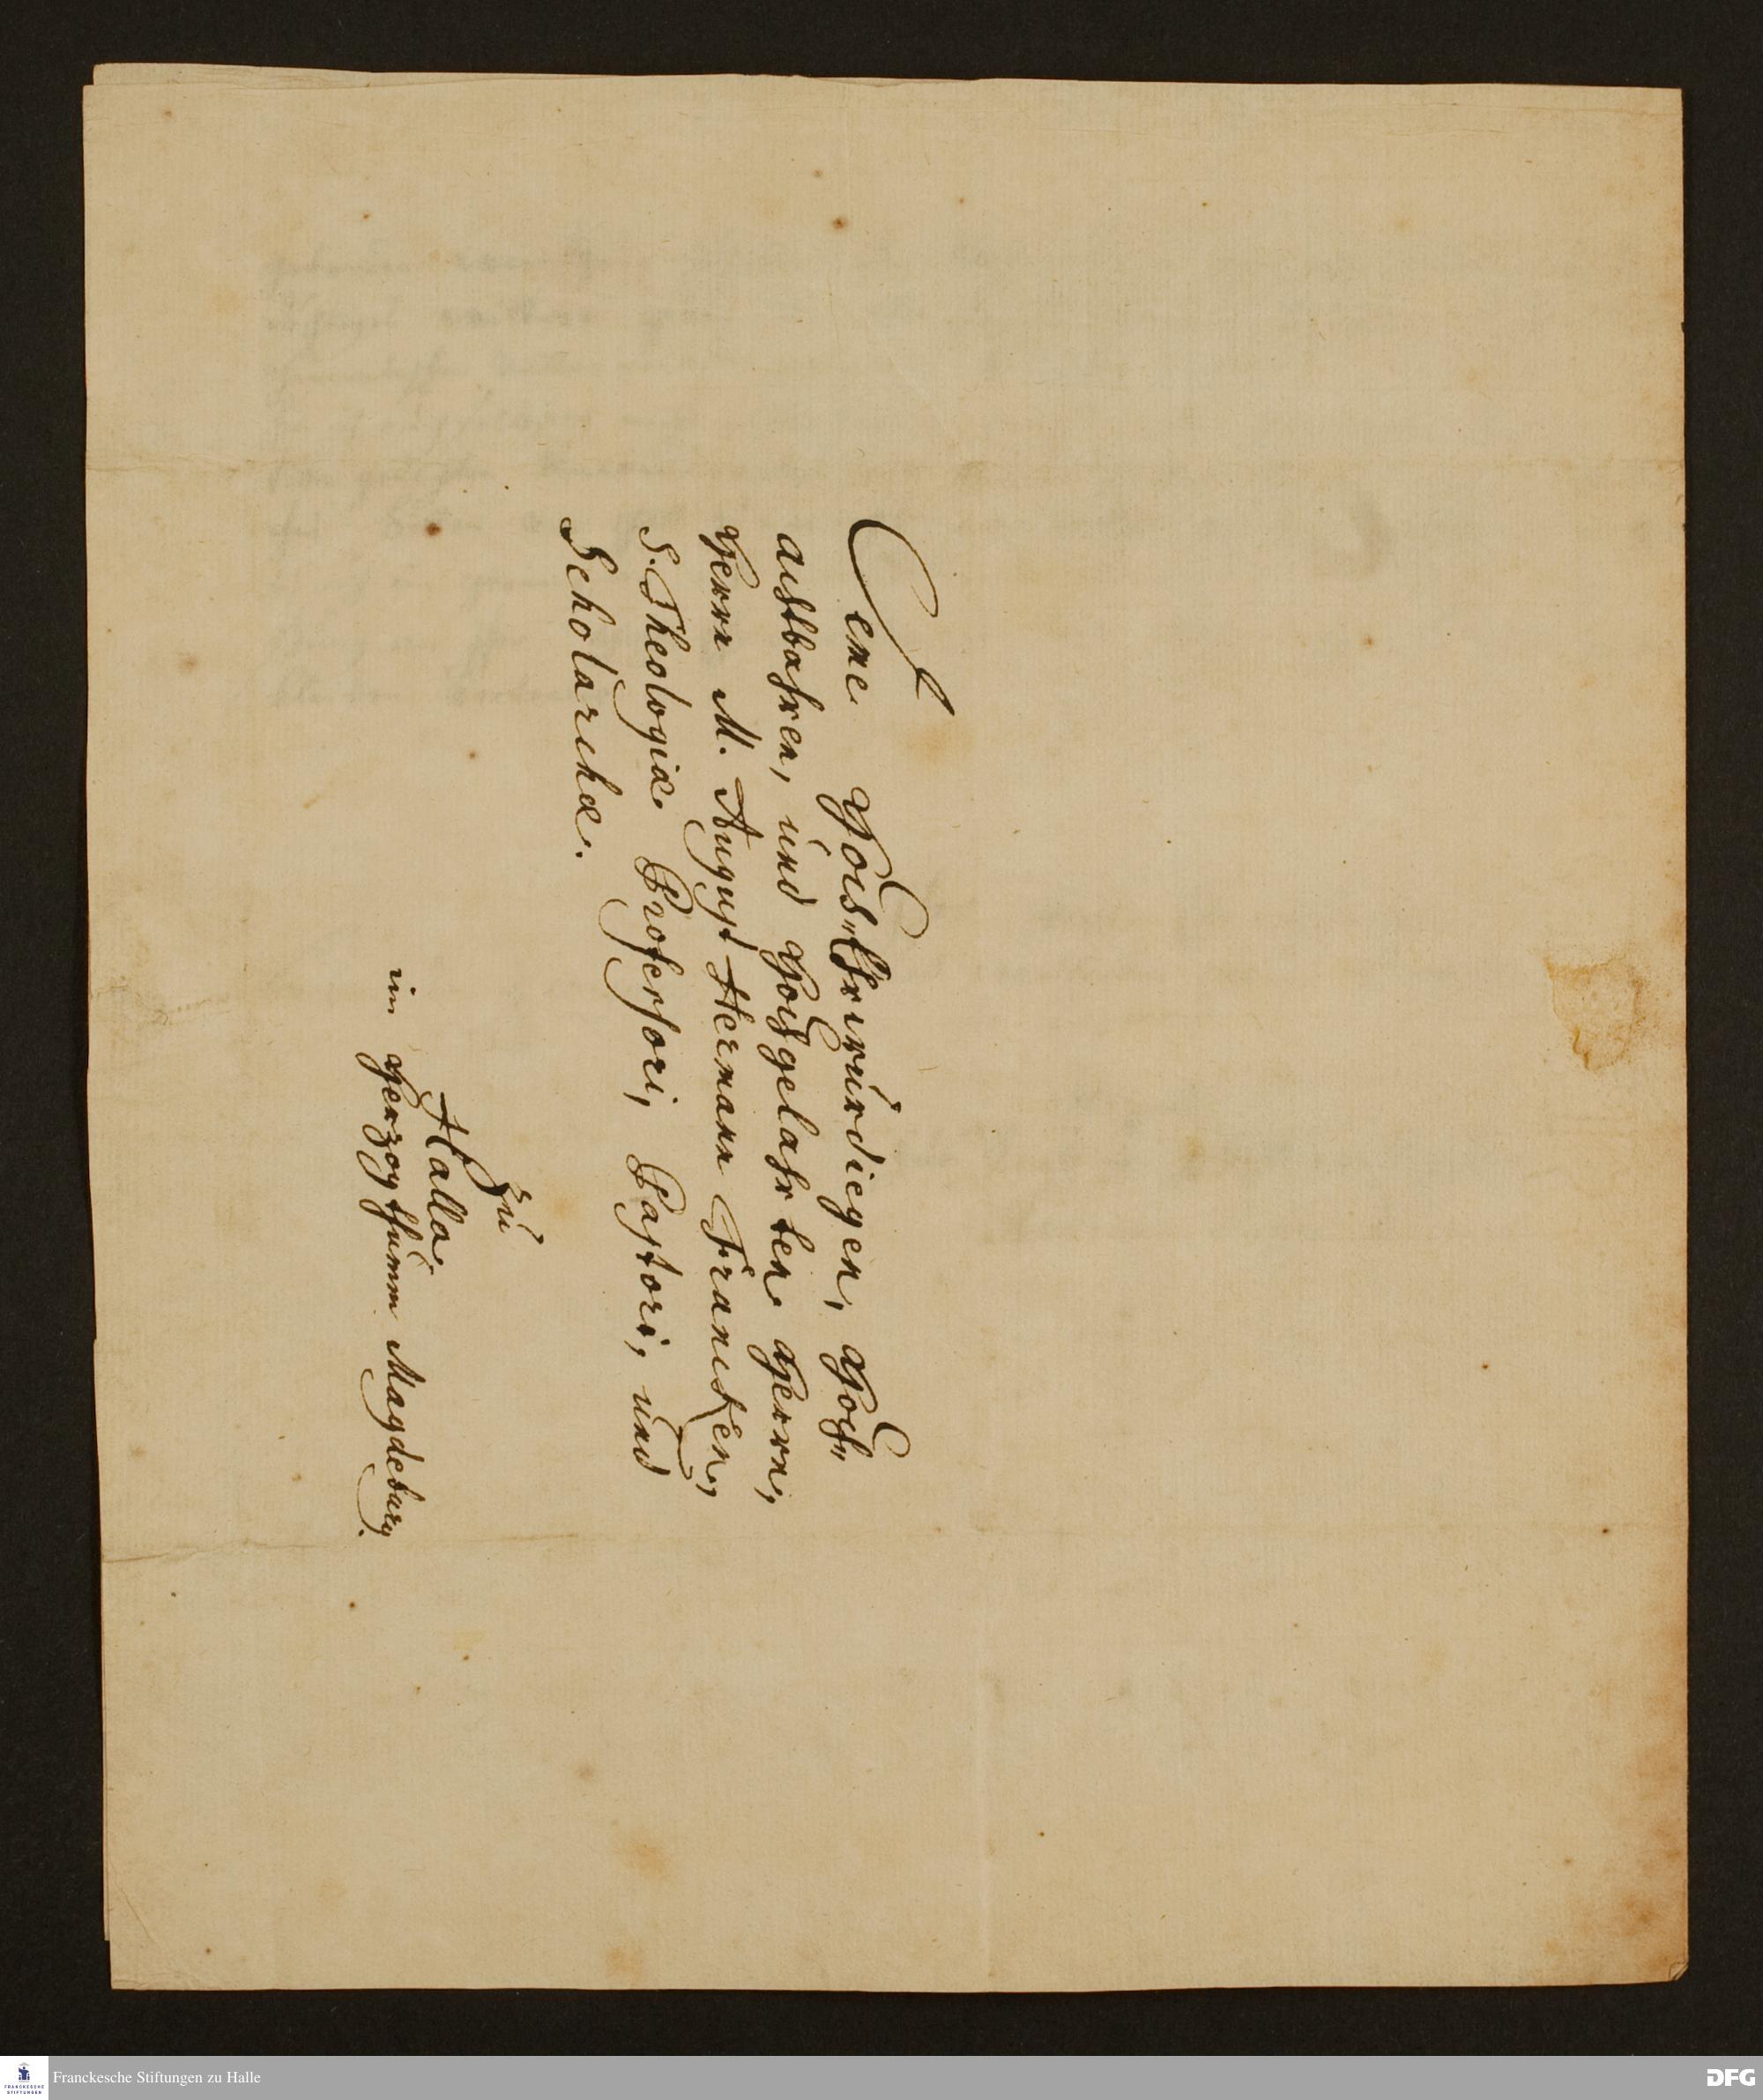 Dene HochEhrwürdiegen, Hoch„
achtbahren, und Hochgelahrten Herrn,
Herrn M. August Hermann Francken,
S. Theologiæ Professori, Pastori, und
Scholarchæ.
Zu
Halla.
im Herzogthumm Magdeburg.
Franckesche Stiftungen zu Halle
FRANCKESCHE
STIFTUNGEN
DFG